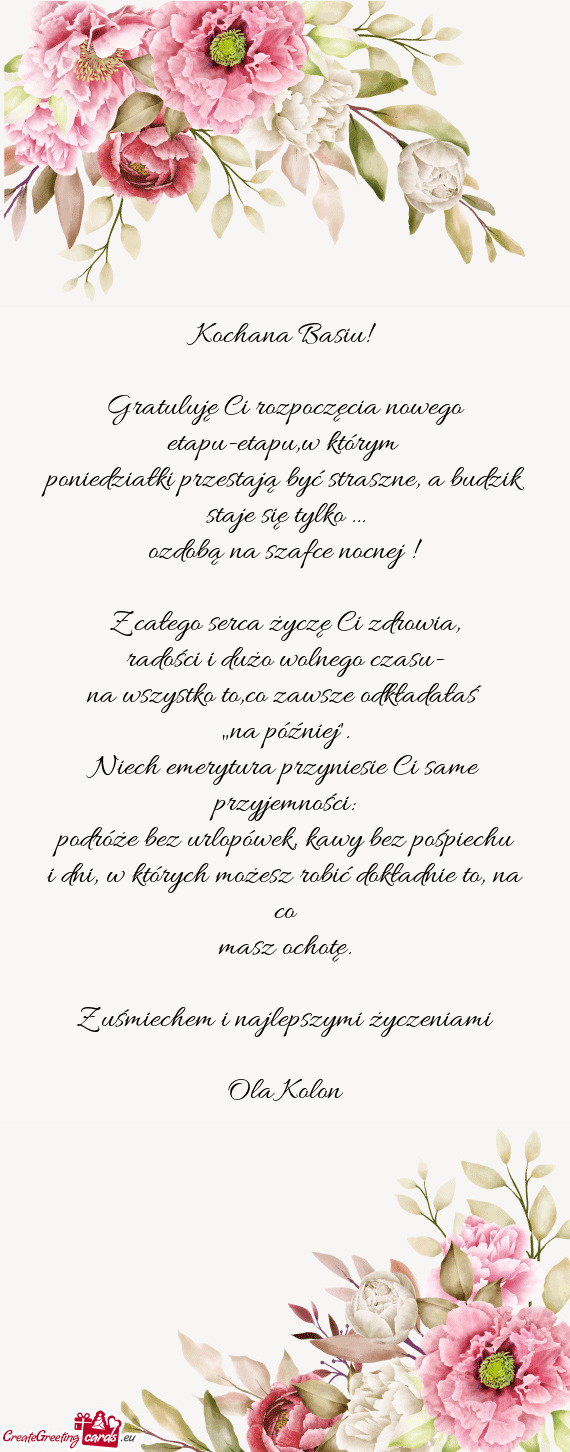 Kochana Basiu!
Gratuluję Ci rozpoczęcia nowego
etapu-etapu,w którym
poniedziałki przestają być straszne, a budzik
staje się tylko ...
ozdobą na szafce nocnej !
Z całego serca życzę Ci zdrowia,
radości i dużo wolnego czasu-
na wszystko to,co zawsze odkładałaś
„na później".
Niech emerytura przyniesie Ci same
przyjemności:
podróże bez urlopówek, kawy bez pośpiechu
i dni, w których możesz robić dokładnie to, na
co
masz ochotę.
Z uśmiechem i najlepszymi życzeniami
Ola Kolon
CreateGreeting cards .eu